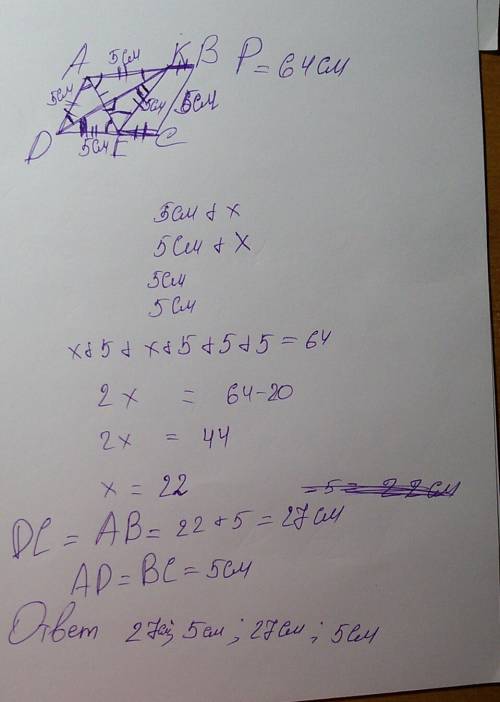 A 5см K B P = 64см
5см 5см 5см
D 5см E C
5см + x
5см + x
5см
5см
x + 5 + x + 5 + 5 + 5 = 64
2x = 64-20
2x = 44
x = 22
DC = AB = 22 + 5 = 27см
AD = BC = 5см
Ответ 27см; 5см; 27см; 5см